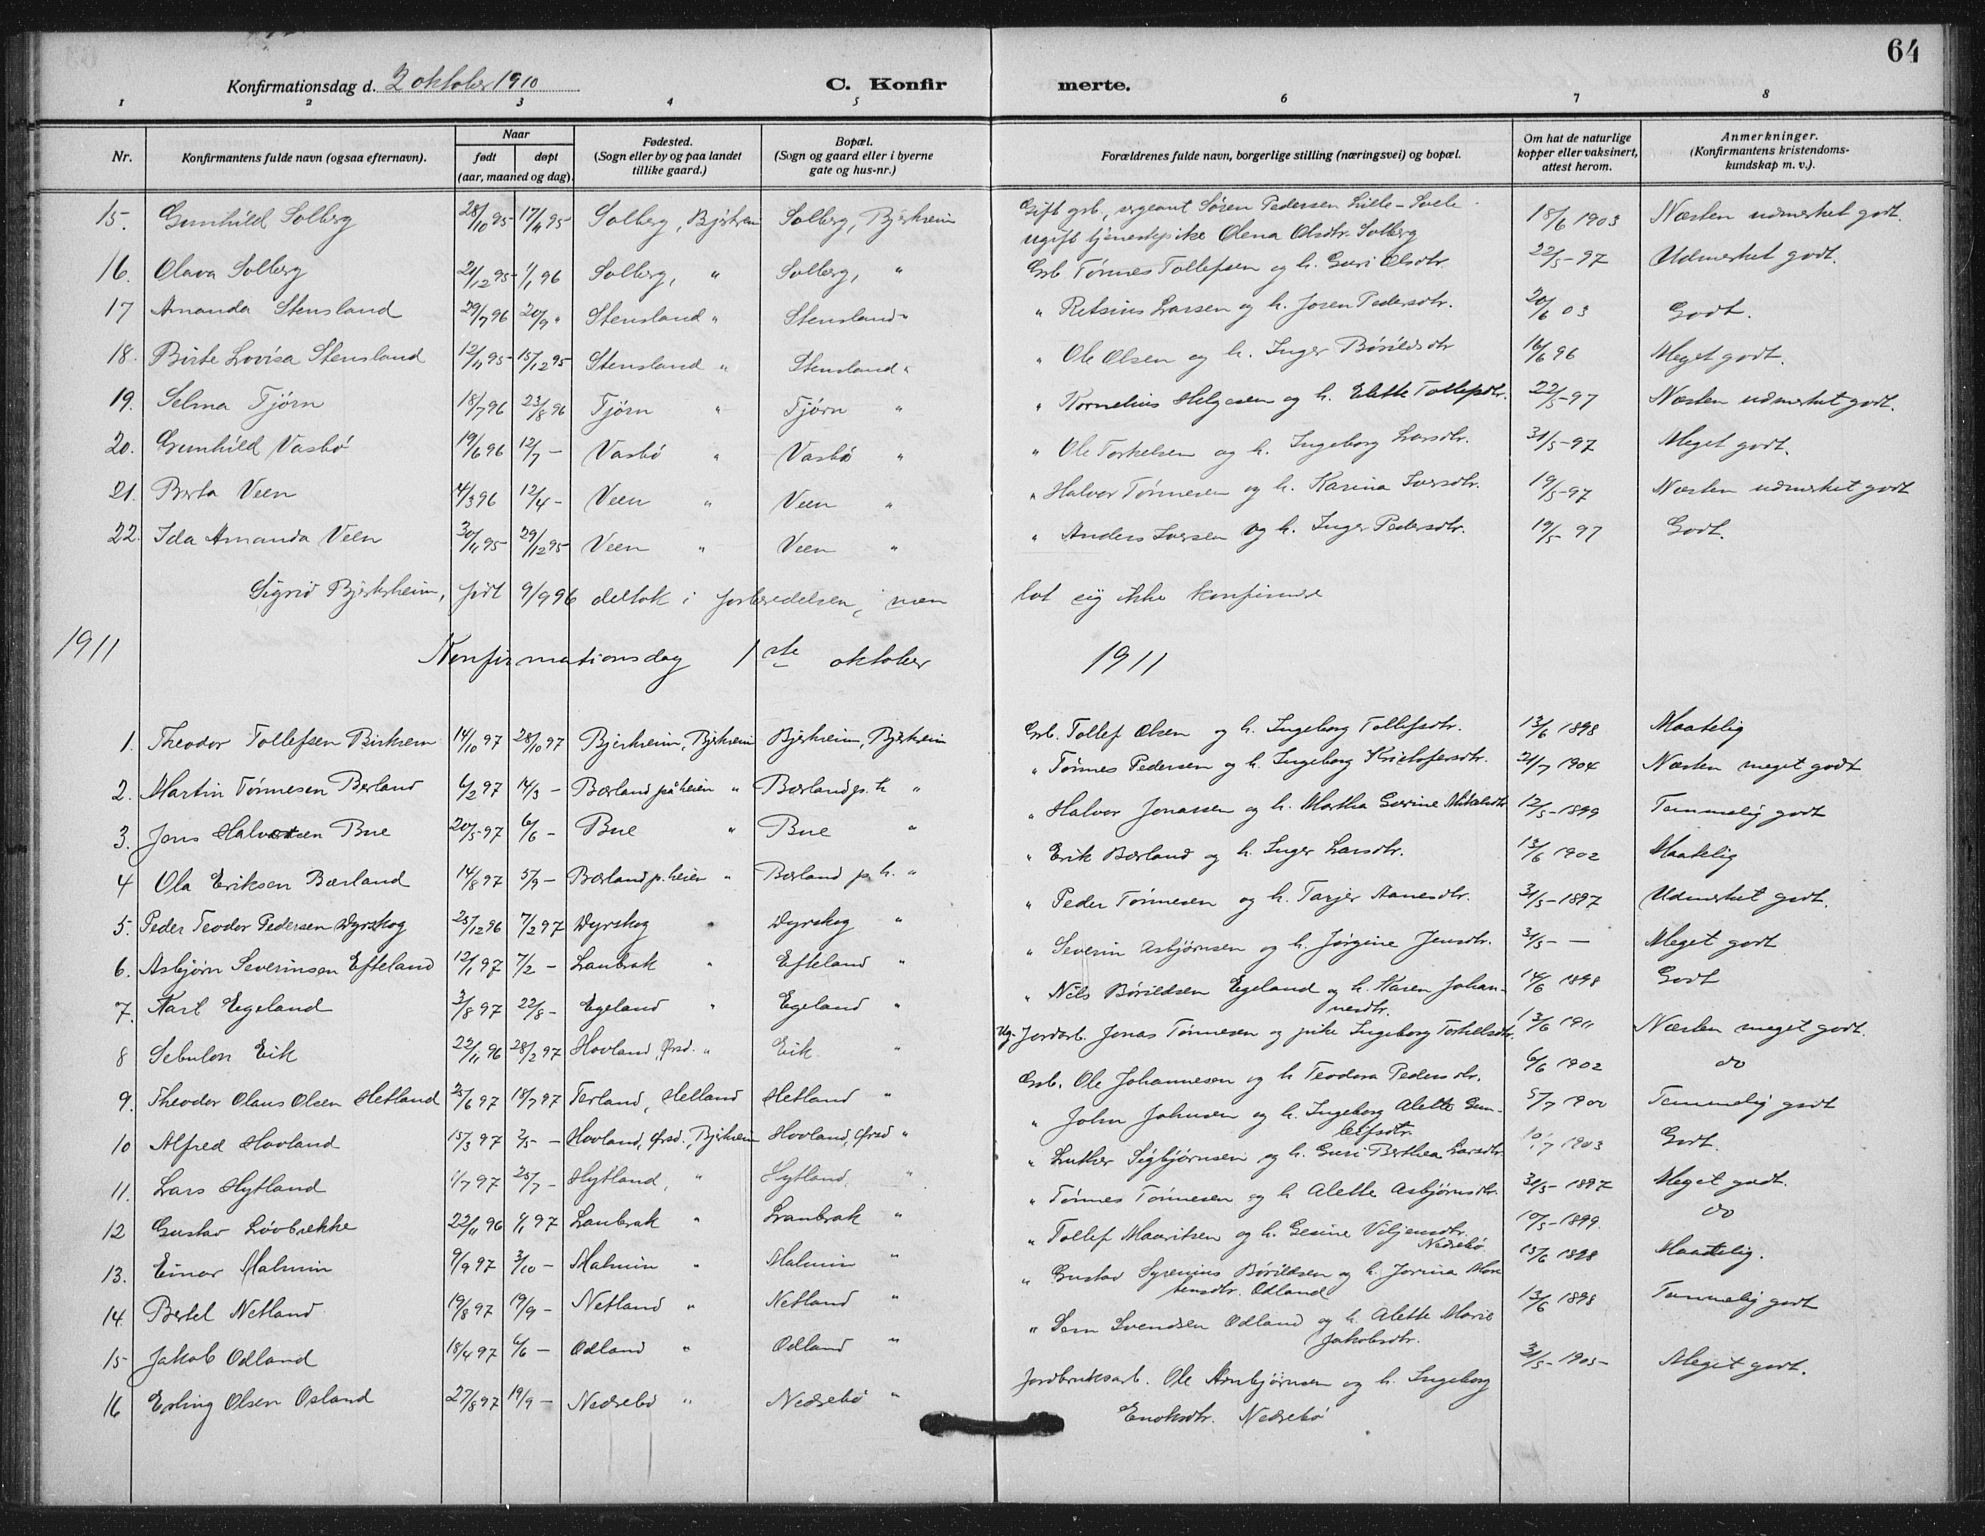 64
Konfirmationsdag d. 2 oktober 1910 C. Konfirmerte.
1 2 3 4 5 6 7 8
Nr. Konfirmantens fulde navn (ogsaa efternavn). Naar født døpt (aar, maaned og dag). Fødested. (Sogn eller by og paa landet tillike gaard.) Bopæl. (Sogn og gaard eller i byerne gate og hus-nr.) Forældrenes fulde navn, borgerlige stilling (næringsvei) og bopæl. Om hat de naturlige kopper eller vaksinert, attest herom. Anmerkninger. (Konfirmantens kristendomskundskap m. v.).
15. Gunhild Solberg 28/10 95 17/11 95 Solberg, Bjerkreim Solberg, Bjerkreim Gift grb, sergeant Søren Pedersen Lille-Svele 18/6 1903 Næsten udmerket godt.
ugift tjenestepike Olena Olsdtr. Solberg
16. Olava Solberg 21/12 95 1/1 96 Solberg, " Solberg, " Grb Tønnes Tollefsen og h. Guri Olsdtr. 22/5-97 Udmerket godt.
17 Amanda Stensland 29/7 96 20/9 " Stensland " Stensland " " Retsius Larsen og h. Josen Pedersdtr. 20/6 03 Godt.
18. Birte Lovisa Stensland 12/11 95 15/12 95 Stensland " Stensland " " Ole Olsen og h. Inger Børildsdtr 16/6 96 Meget godt.
19. Selma Tjörn 18/7 96 23/8 96 Tjörn " Tjörn " " Kornelius Helgesen og h. Elette Tollefsdtr. 22/5-97 Næsten udmerket godt.
20. Gunhild Vasbö 19/6 96 12/7 - Vasbö " Vasbö " " Ole Torkelsen og h. Ingeborg Larsdtr. 31/5-97 Meget godt.
21. Berta Veen 4/3 96 12/4 - Veen " Veen " " Halvor Tønnesen og h. Karina Iversdtr. 19/5-97 Næsten udmerket godt
22. Ida Amanda Veen 30/11 95 29/12 95 Veen " Veen " " Anders Iversen og h. Inger Pedersdtr. 19/5-97 Godt.
Sigrid Bjerkreim, født 9/9 96 deltok i forberedelsen, men lot sig ikke konfirmere
1911 Konfirmationsdag 1ste oktober 1911
1. Theodor Tollefsen Birkrem 14/10 97 28/10 97 Bjerkreim, Bjerkreim Bjerkreim, Bjerkreim Grb. Tollef Olsen og h. Ingeborg Tollefsdtr. 13/6 1898 Maatelig
2. Martin Tönnesen Berland 6/2 97 14/3 - Bærland på heien " Bærland p. h " " Tønnes Pedersen og h. Ingeborg Kristofersdtr. 21/7 1904 Næsten meget godt
3. Jens Halvorsen Bue 20/5 97 6/6 - Bue " Bue " " Halvor Jonassen og h. Martha Gurine Mikalsdtr 12/5-1899 Temmelig godt
4 Ola Eriksen Bærland 14/8 97 5/9 - Bærland p. heien " Bærland p. h. " " Erik Bærland og h. Inger Larsdtr. 13/6 1902 Maatelig
5. Peder Teodor Pedersen Dyrskog 25/12 96 7/2 97 Dyrskog " Dyrskog " " Peder Tönnesen og h. Tarjer Aanesdtr. 31/5-1897 Udmerket godt.
6. Asbjørn Severinsen Efteland 12/1 97 7/2 - Laubrak " Efteland " " Severin Asbjørnsen og h. Jørgine Jensdtr. 31/5 - - Meget godt
7. Karl Egeland 3/8 97 22/8 - Egeland " Egeland " " Nils Børildsen Egeland og h. Karen Johan- 14/6 1898 Godt
nesdtr.
8 Sebulon Eik 22/11 96 28/2 97 Hovland, Ørsd. " Eik " Ug. Jordarb. Jonas Tønnesen og pike Ingeborg Torkelsdtr. 13/6 1911 Næsten meget godt.
9. Theodor Olaus Olsen Hetland 25/6 97 18/7 97 Terland, Helland Hetland " Grb. Ole Johannesen og h Teodora Pedersdtr. 6/6 1902 do
10 Alfred Hovland 15/3 97 2/5 - Hovland, Ørsd., Bjerkreim Hovland, Ørsd " " John Johnsen og h. Ingeborg Alette Gun- 5/7 1900 Temmelig godt
leifsdtr.
11. Lars Hytland 1/7 97 25/7 - Hytland, " Hytland. " " Luther Sigbjørnsen og h. Guri Berthea Larsdtr. 10/7 1903 Godt.
12 Gustav Lövbrække 22/11 96 1/1 97 Laubrak " Laubrak " " Tønnes Tønnesen og h. Alette Asbjørnsdtr. 31/5-1897 Meget godt.
13. Einar Malmin 9/9 97 3/10 - Malmin " Malmin " " Tollef Mauritsen og h. Gesine Viljemsdtr. Nedrebö 10/5-1899. do
14. Bertel Netland 19/8 97 19/9 - Netland " Netland " " Gustav Syrenius Börildsen og h. Jorina Mor- 13/6 1898 Maatelig.
tensdtr. Odland
15 Jakob Odland 18/4 97 6/6 - Odland " Odland " " Sem Svendsen Odland og h. Alette Marie 13/6 1898 Temmelig godt
Jakobsdtr.
16 Erling Olsen Osland 27/8 97 19/9 - Nedrebö " Nedrebö " Jordbruksarb. Ole Arnbjørnsen og h. Ingeborg 31/5-1905- Meget godt.
Enoksdtr. Nedrebö